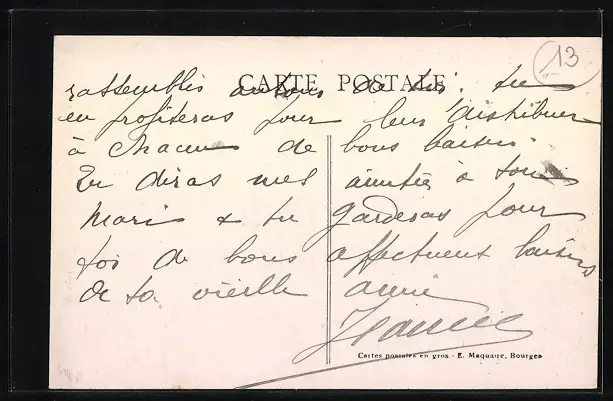 13
CARTE POSTALE
rassemblés autour de toi. tu
en profiteras pour leur distribuer
à chacun de bons baisers.
Tu diras mes amitiés à ton
Mari & tu garderas pour
toi de bons affectueux baisers
de ta vieille amie
Cartes postales en gros - E. Maquaire, Bourges